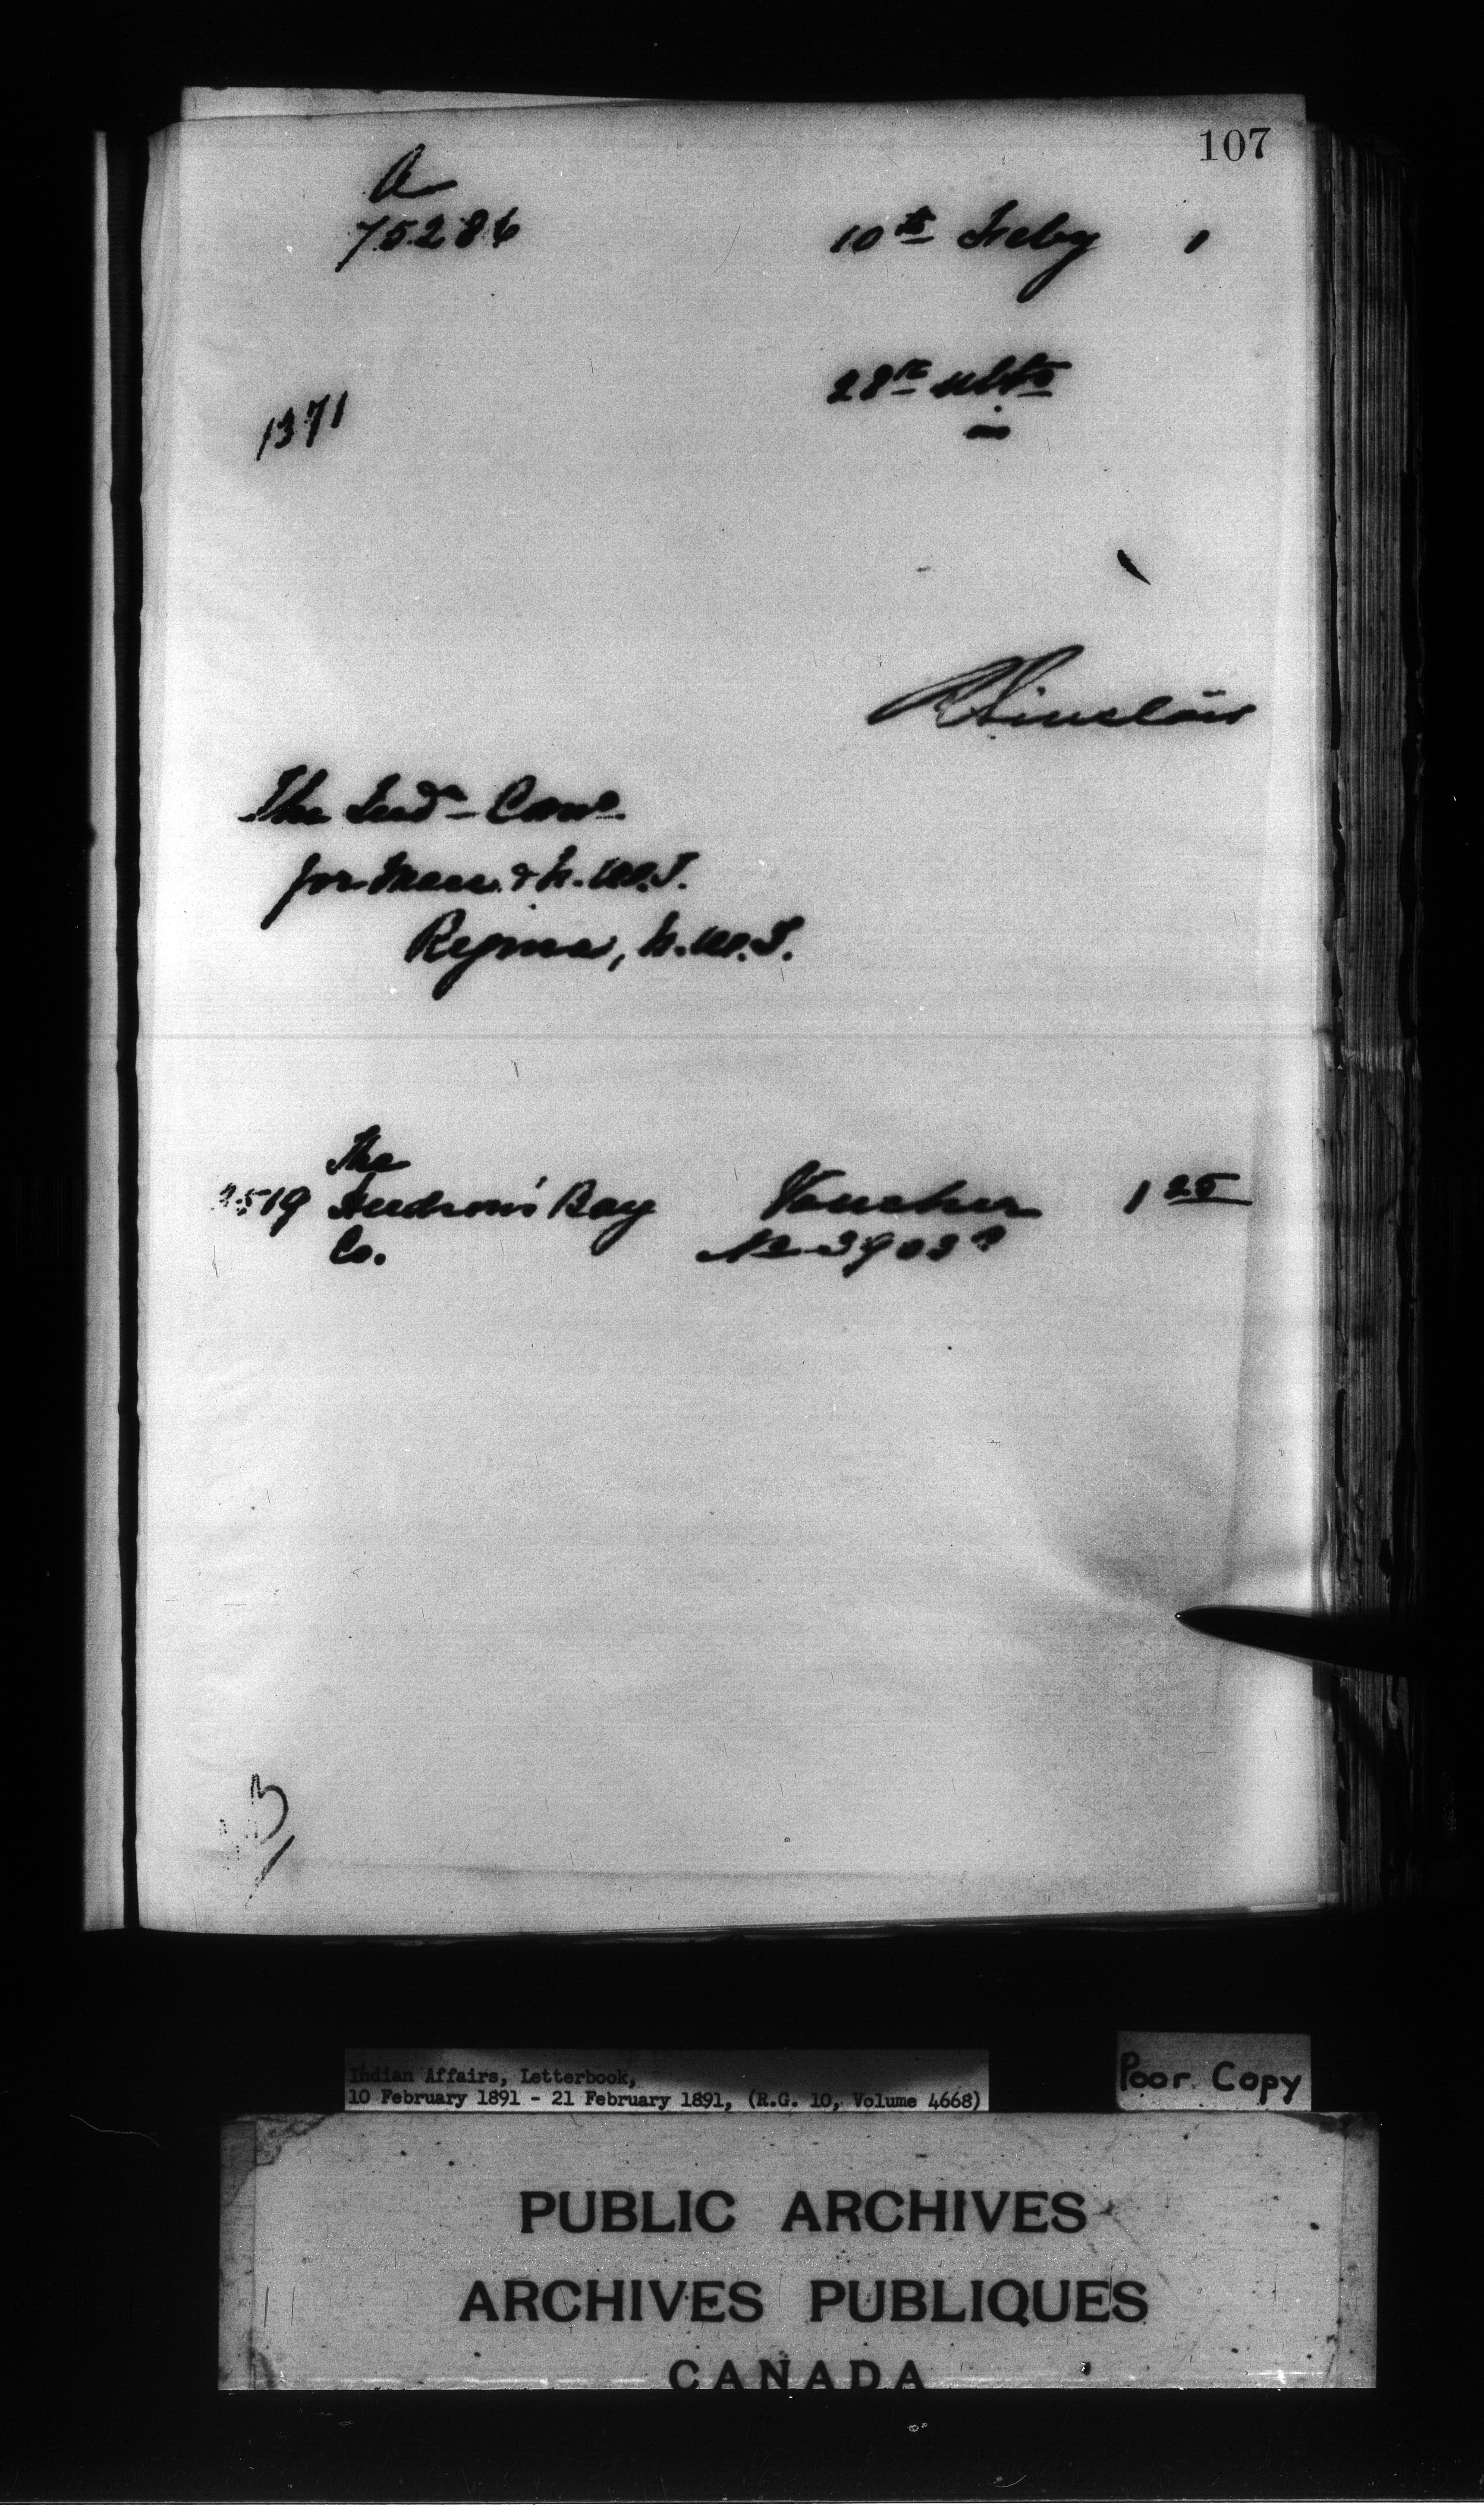 107
A
75286
10th Feby 1
28th ulto
1371
in
R Sinclair
The Ind. Com.
for Man. & N.W.T.
Regina, N.W.T.
The
2519 Hudson's Bay Voucher 1 25
Co. No 3903
Indian Affairs, Letterbook,
10 February 1891 - 21 February 1891, (R.G. 10, Volume 4668)
Poor Copy
PUBLIC ARCHIVES
ARCHIVES PUBLIQUES
CANADA